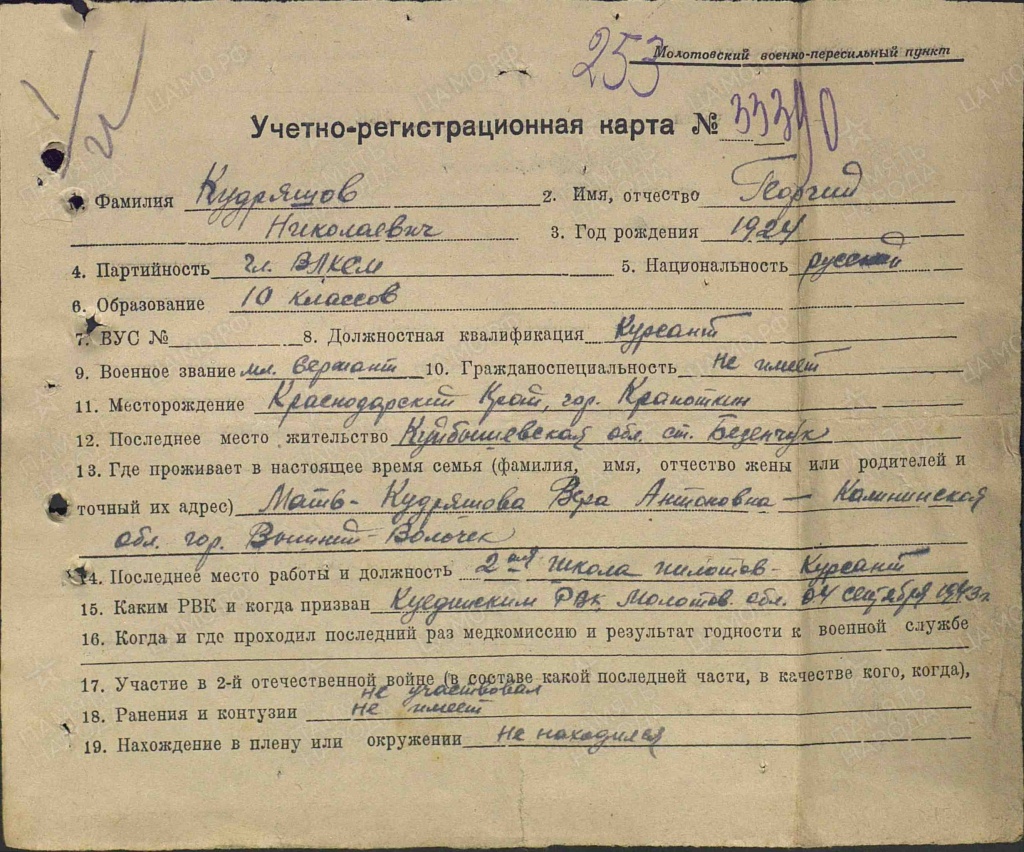 253
Молотовский военно-пересильный пункт
Учетно-регистрационная карта № 33390
1. Фамилия Кудряшов 2. Имя, отчество Георгий
Николаевич 3. Год рождения 1924
4. Партийность чл. ВЛКСМ 5. Национальность русский
6. Образование 10 классов
7. ВУС № 8. Должностная квалификация Курсант
9. Военное звание мл. сержант 10. Гражданоспециальность не имеет
11. Месторождение Краснодарский Край, гор. Кропоткин
12. Последнее место жительство Куйбышевской обл. ст. Безенчук
13. Где проживает в настоящее время семья (фамилия, имя, отчество жены или родителей и
точный их адрес) Мать - Кудряшова Вера Антоновна - Калининской
обл. гор. Вышний-Волочек
14. Последнее место работы и должность 2ая школа пилотов - Курсант
15. Каким РВК и когда призван Куединским РВК Молотов. обл. 04 сентября 1943г.
16. Когда и где проходил последний раз медкомиссию и результат годности к военной службе
17. Участие в 2-й отечественной войне (в составе какой последней части, в качестве кого, когда),
не участвовал
18. Ранения и контузии не имеет
19. Нахождение в плену или окружении не находился